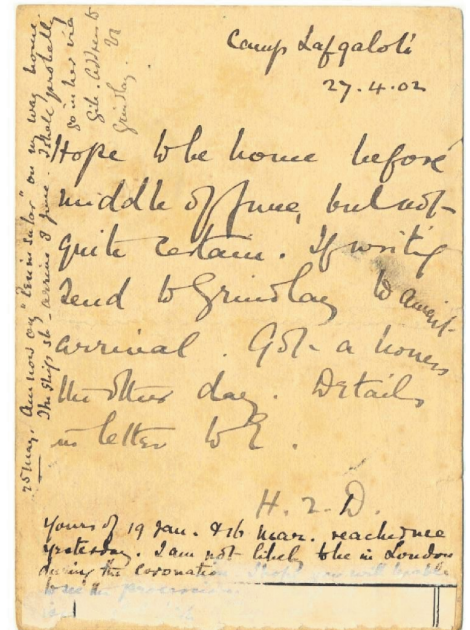 Camp Lafgaloti
27.4.02
Hope to be home before
middle of June, but not
quite certain. If writing
send to Grindlay to await
arrival. Got a
the other day. Details
in letter to E.
H. L. D.
Yours of 19 Jan. & 16 Mar. reached me
yesterday. I am not likely to be in London
during the coronation
to see the procession
25 May. Am now on "Peninsular" on my way home.
The ship sh arrive 8 June. I shall probably
go in her via
Gib. Address to
Grindlay.